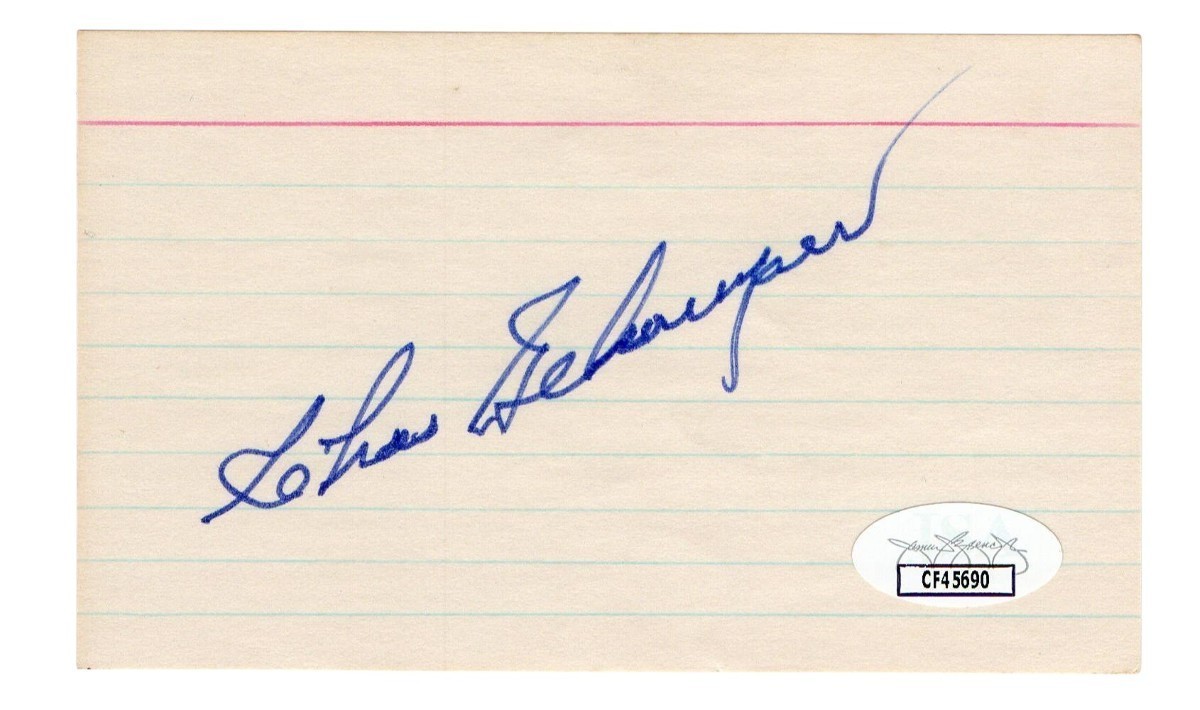 Chas Gehringer
CF45690